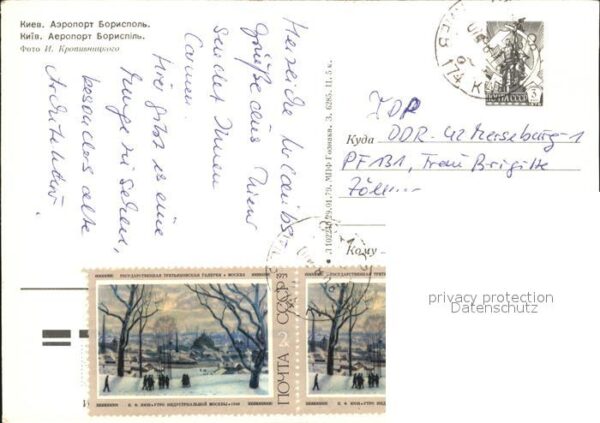 Киев. Аэропорт Борисполь.
Київ. Аеропорт Бориспіль.
Фото И. Кропивницкого
Herzliche Urlaubs-
grüße aus Kiew
sendet Ihnen
Carmen.
Hier gibt es eine
Menge zu sehen,
besonders alte
Architektur.
З. 6285. 11, 5 к.
МПФ Гознака.
29.01.79.
Куда
DDR - 42 Merseburg-1
PF 131, Frau Brigitte
Кому
ГОСУДАРСТВЕННАЯ ТРЕТЬЯКОВСКАЯ ГАЛЕРЕЯ • МОСКВА
ПОЧТА СССР
К. Ф. ЮОН • УТРО ИНДУСТРИАЛЬНОЙ МОСКВЫ • 1949
ГОСУДАРСТВЕННАЯ ТРЕТЬЯ
К. Ф. ЮОН • УТРО ИНД
privacy protection
Datenschutz